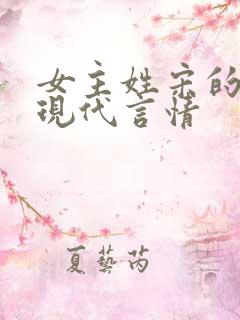 女主姓宋的
現代言情
夏藝芮